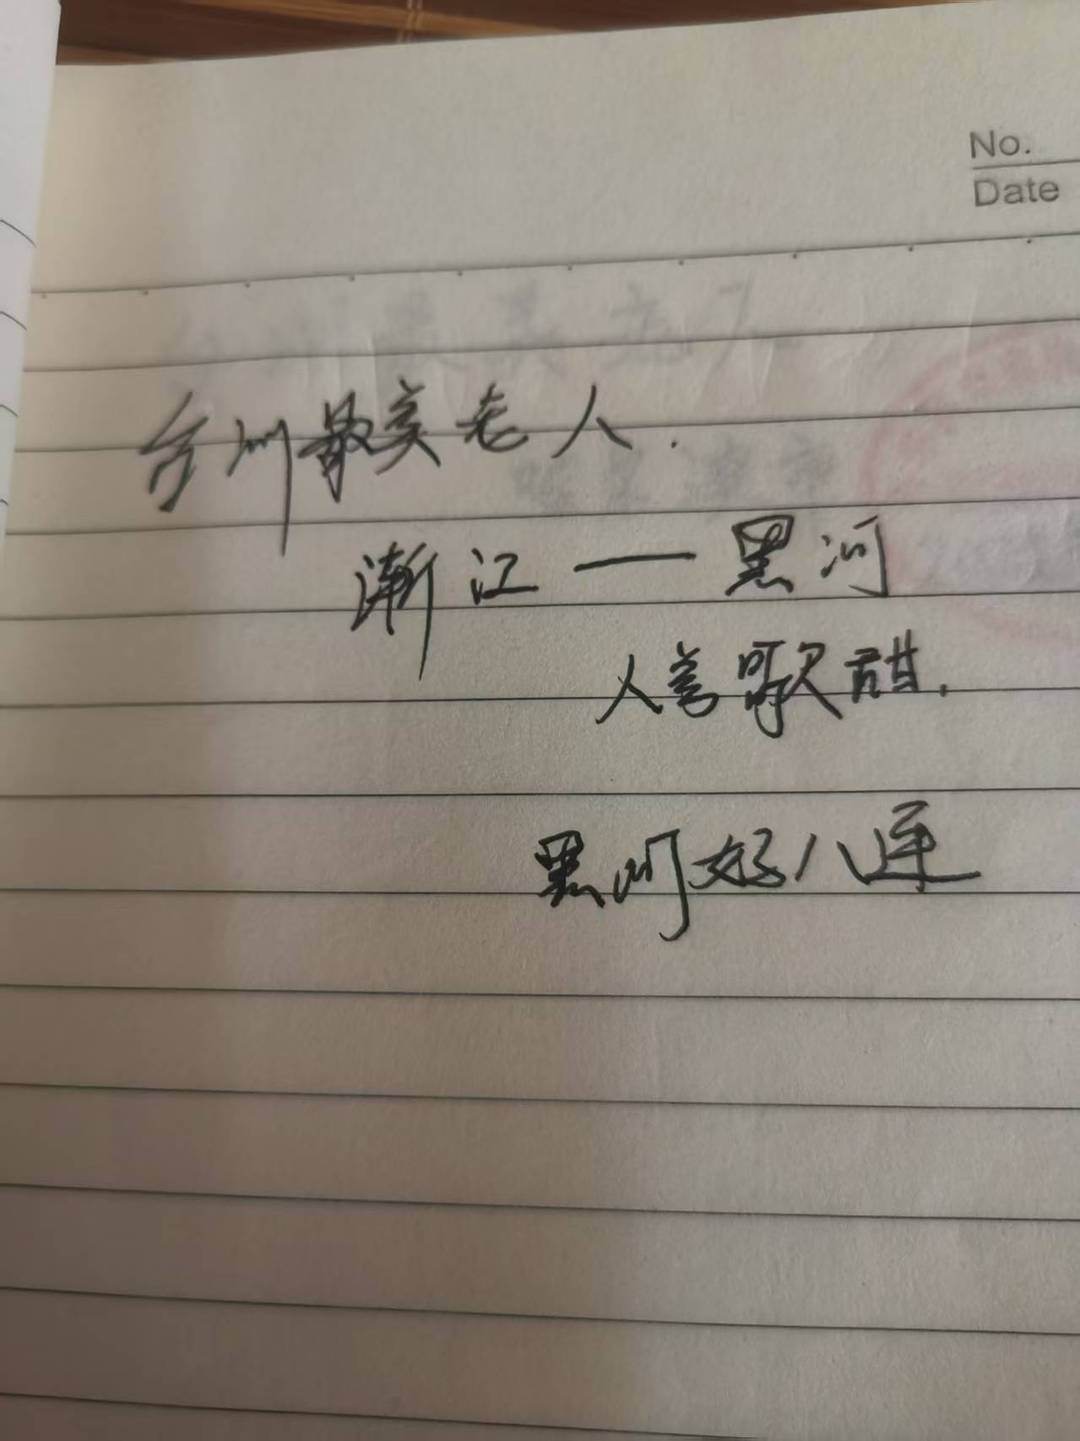 No.
Date
台州最美老人.
浙江一黑河
人善歌甜.
黑河好八连